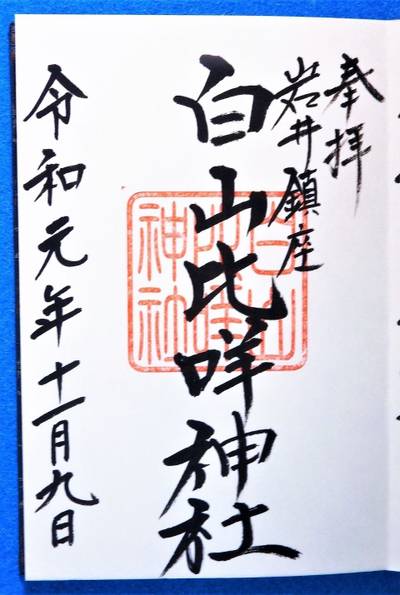 奉拝
岩井鎮座
白山比咩神社
白山比咩神社
令和元年十一月九日